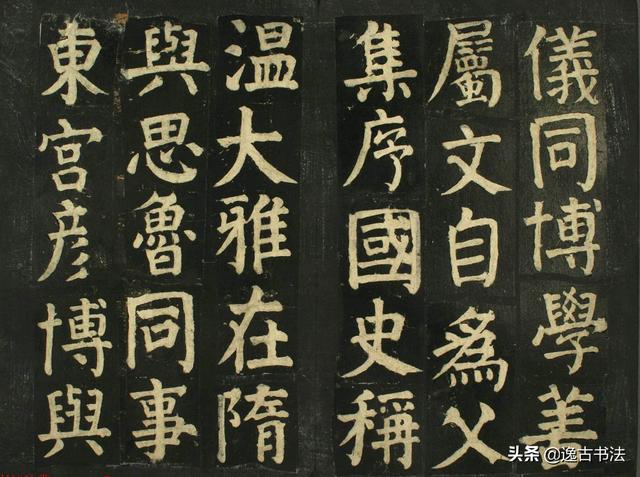 儀同博學善
屬文自為父
集序國史稱
温大雅在隋
與思魯同事
東宮彦博與
头条 @逸古书法